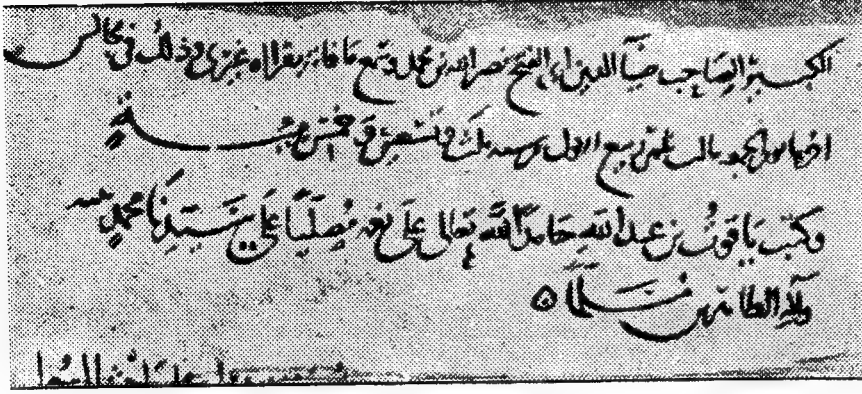 الكبير الصاحب ضيآ الدين ابي الفتح نصر الله بن محمد وسمع ما فاته بقراءة غيري وذلك في مجالس
اخرها يوم الجمعة ثالث عشر ربيع الاول سنة ثلث وتسعين وخمس مئة
وكتب ياقوت بن عبد الله حامداً لله تعالى على نعمه ومصلياً على سيدنا محمد
وآله الطاهرين ومسلماً